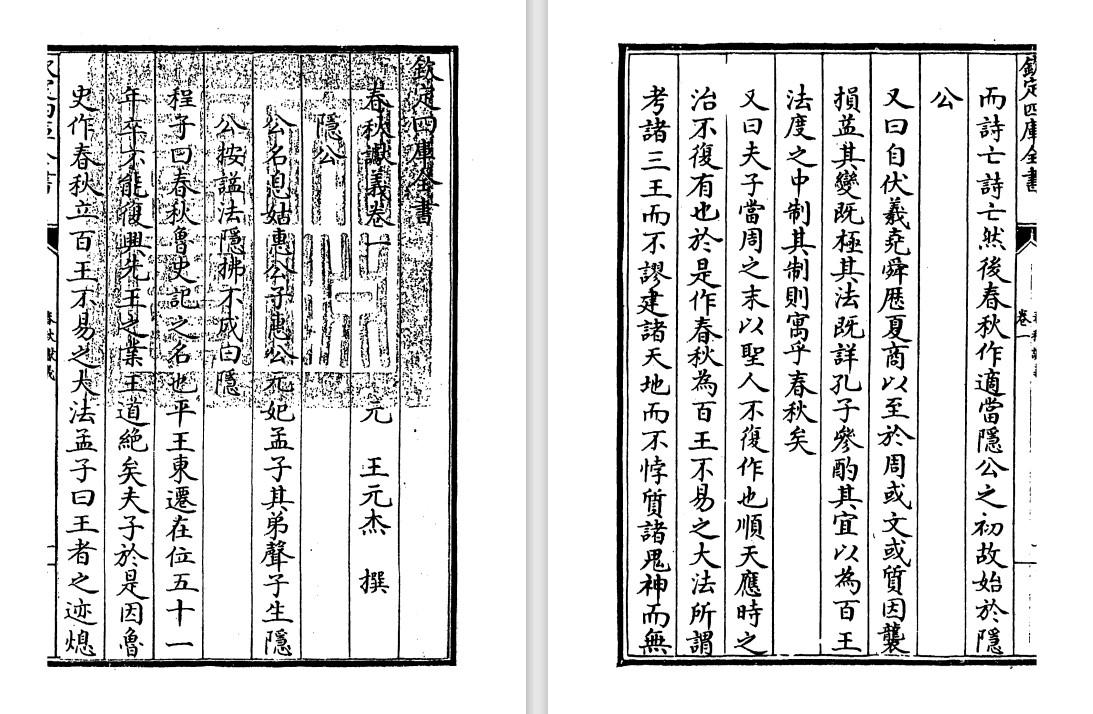 欽定四庫全書
春秋讞義卷一 元 王元杰 撰
隱公
公名息姑惠公子惠公元妃孟子其弟聲子生隱
公按諡法隱拂不成曰隱
程子曰春秋魯史記之名也平王東遷在位五十一
年卒不能復興先王之業王道絶矣夫子於是因魯
史作春秋立百王不易之大法孟子曰王者之迹熄
欽定四庫全書
卷一
而詩亡詩亡然後春秋作適當隱公之初故始於隱
公
又曰自伏羲堯舜歷夏商以至於周或文或質因襲
損益其變既極其法既詳孔子參酌其宜以為百王
法度之中制其制則寓乎春秋矣
又曰夫子當周之末以聖人不復作也順天應時之
治不復有也於是作春秋為百王不易之大法所謂
考諸三王而不謬建諸天地而不悖質諸鬼神而無